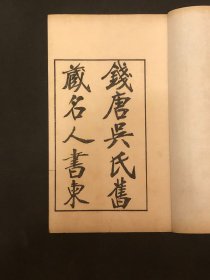 錢唐吳氏舊
藏名人書柬